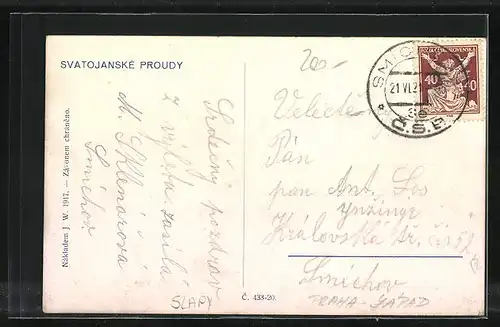 SVATOJANSKÉ PROUDY
Nákladem J. W. 1917. — Zákonem chráněno.
Srdečný pozdrav
z výletu zasílá
M. Sklenářová
Smíchov
SLAPY
Č. 433-20.
200-
SMÍCHOV
21 VI. 21
Č.S.P.
40 40
Velectě
Pán
pan Ant. Los
Královská tř. čís
Smíchov
PRAHA - ZÁPAD